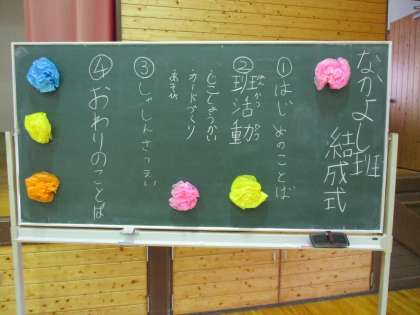 なかよし班
結成式
①はじめのことば
②班活動
はんかつどう
・じこしょうかい
・カードづくり
・あそび
③しゃしんさつえい
④おわりのことば